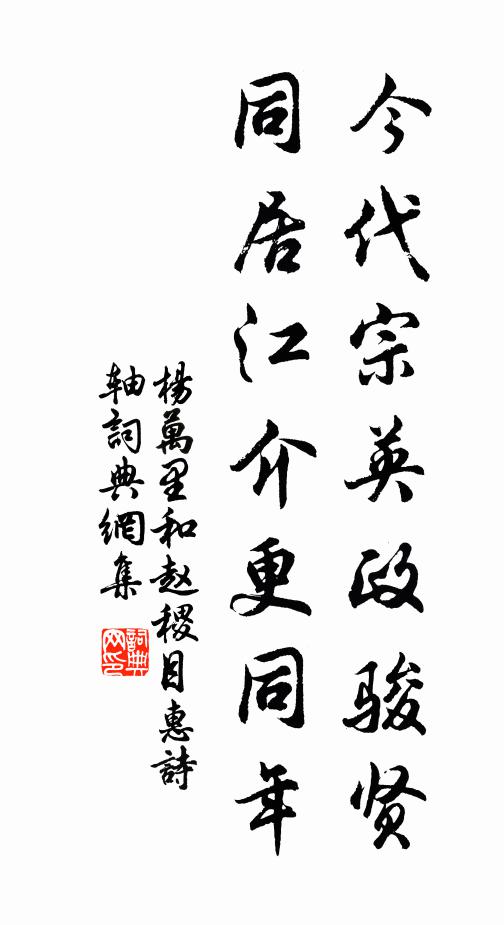 今代宗英政骏贤
同居江介更同年
楊萬里和赵稷目惠詩
轴詞典網集
詞典
网印